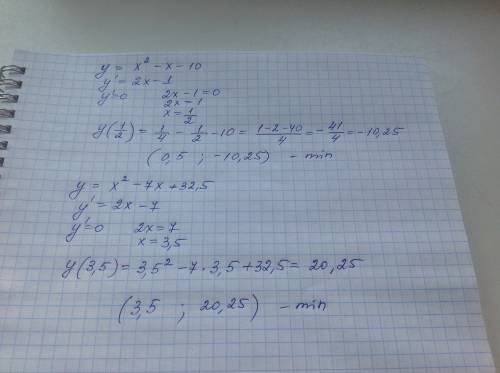 y = x² - x - 10
y' = 2x - 1
y'=0 2x - 1 = 0
2x - 1
x = 1/2
y(1/2) = 1/4 - 1/2 - 10 = (1-2-40)/4 = -41/4 = -10,25
(0,5 ; -10,25) - min
y = x² - 7x + 32,5
y' = 2x - 7
y'=0 2x = 7
x = 3,5
y(3,5) = 3,5² - 7 · 3,5 + 32,5 = 20,25
(3,5 ; 20,25) - min